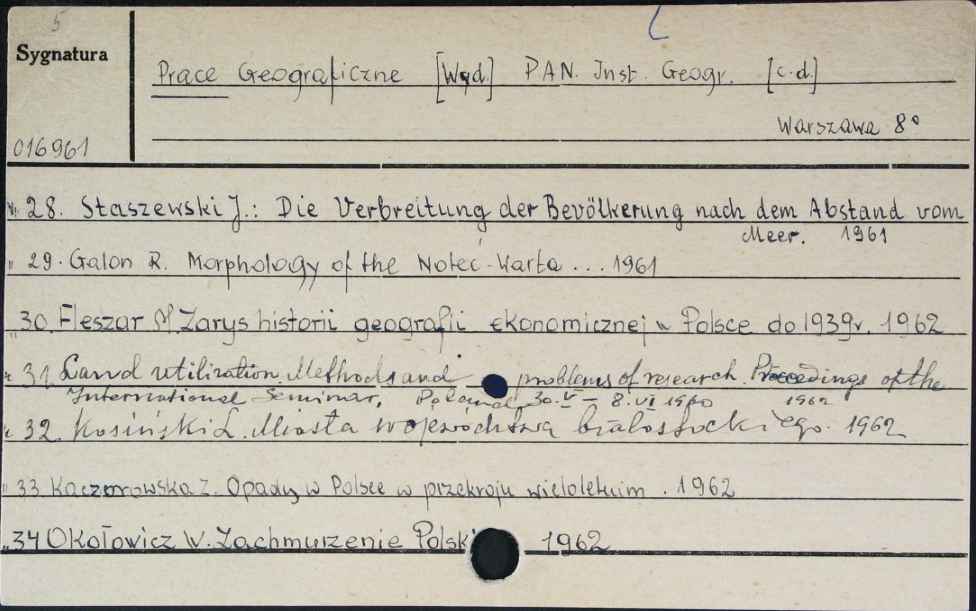 5
Sygnatura
Prace Geograficzne [Wyd.] PAN. Inst. Geogr. [c.d.]
Warszawa 8°
016961
28. Staszewski J.: Die Verbreitung der Bevölkerung nach dem Abstand vom
Meer. 1961
" 29. Galon R. Morphology of the Noteć-Warta ... 1961
" 30. Fleszar M Zarys historii geografii ekonomicznej w Polsce do 1939r. 1962
31 Land utilization. Methods and problems of research. Proceedings of the
International Seminar, Poland, 30.V – 8.VI 1960 1962
32. Kosiński L. Miasta województwa białostockiego. 1962
" 33 Kaczorowska Z. Opady w Polsce w przekroju wieloletnim. 1962
" 34 Okołowicz W. Zachmurzenie Polski 1962